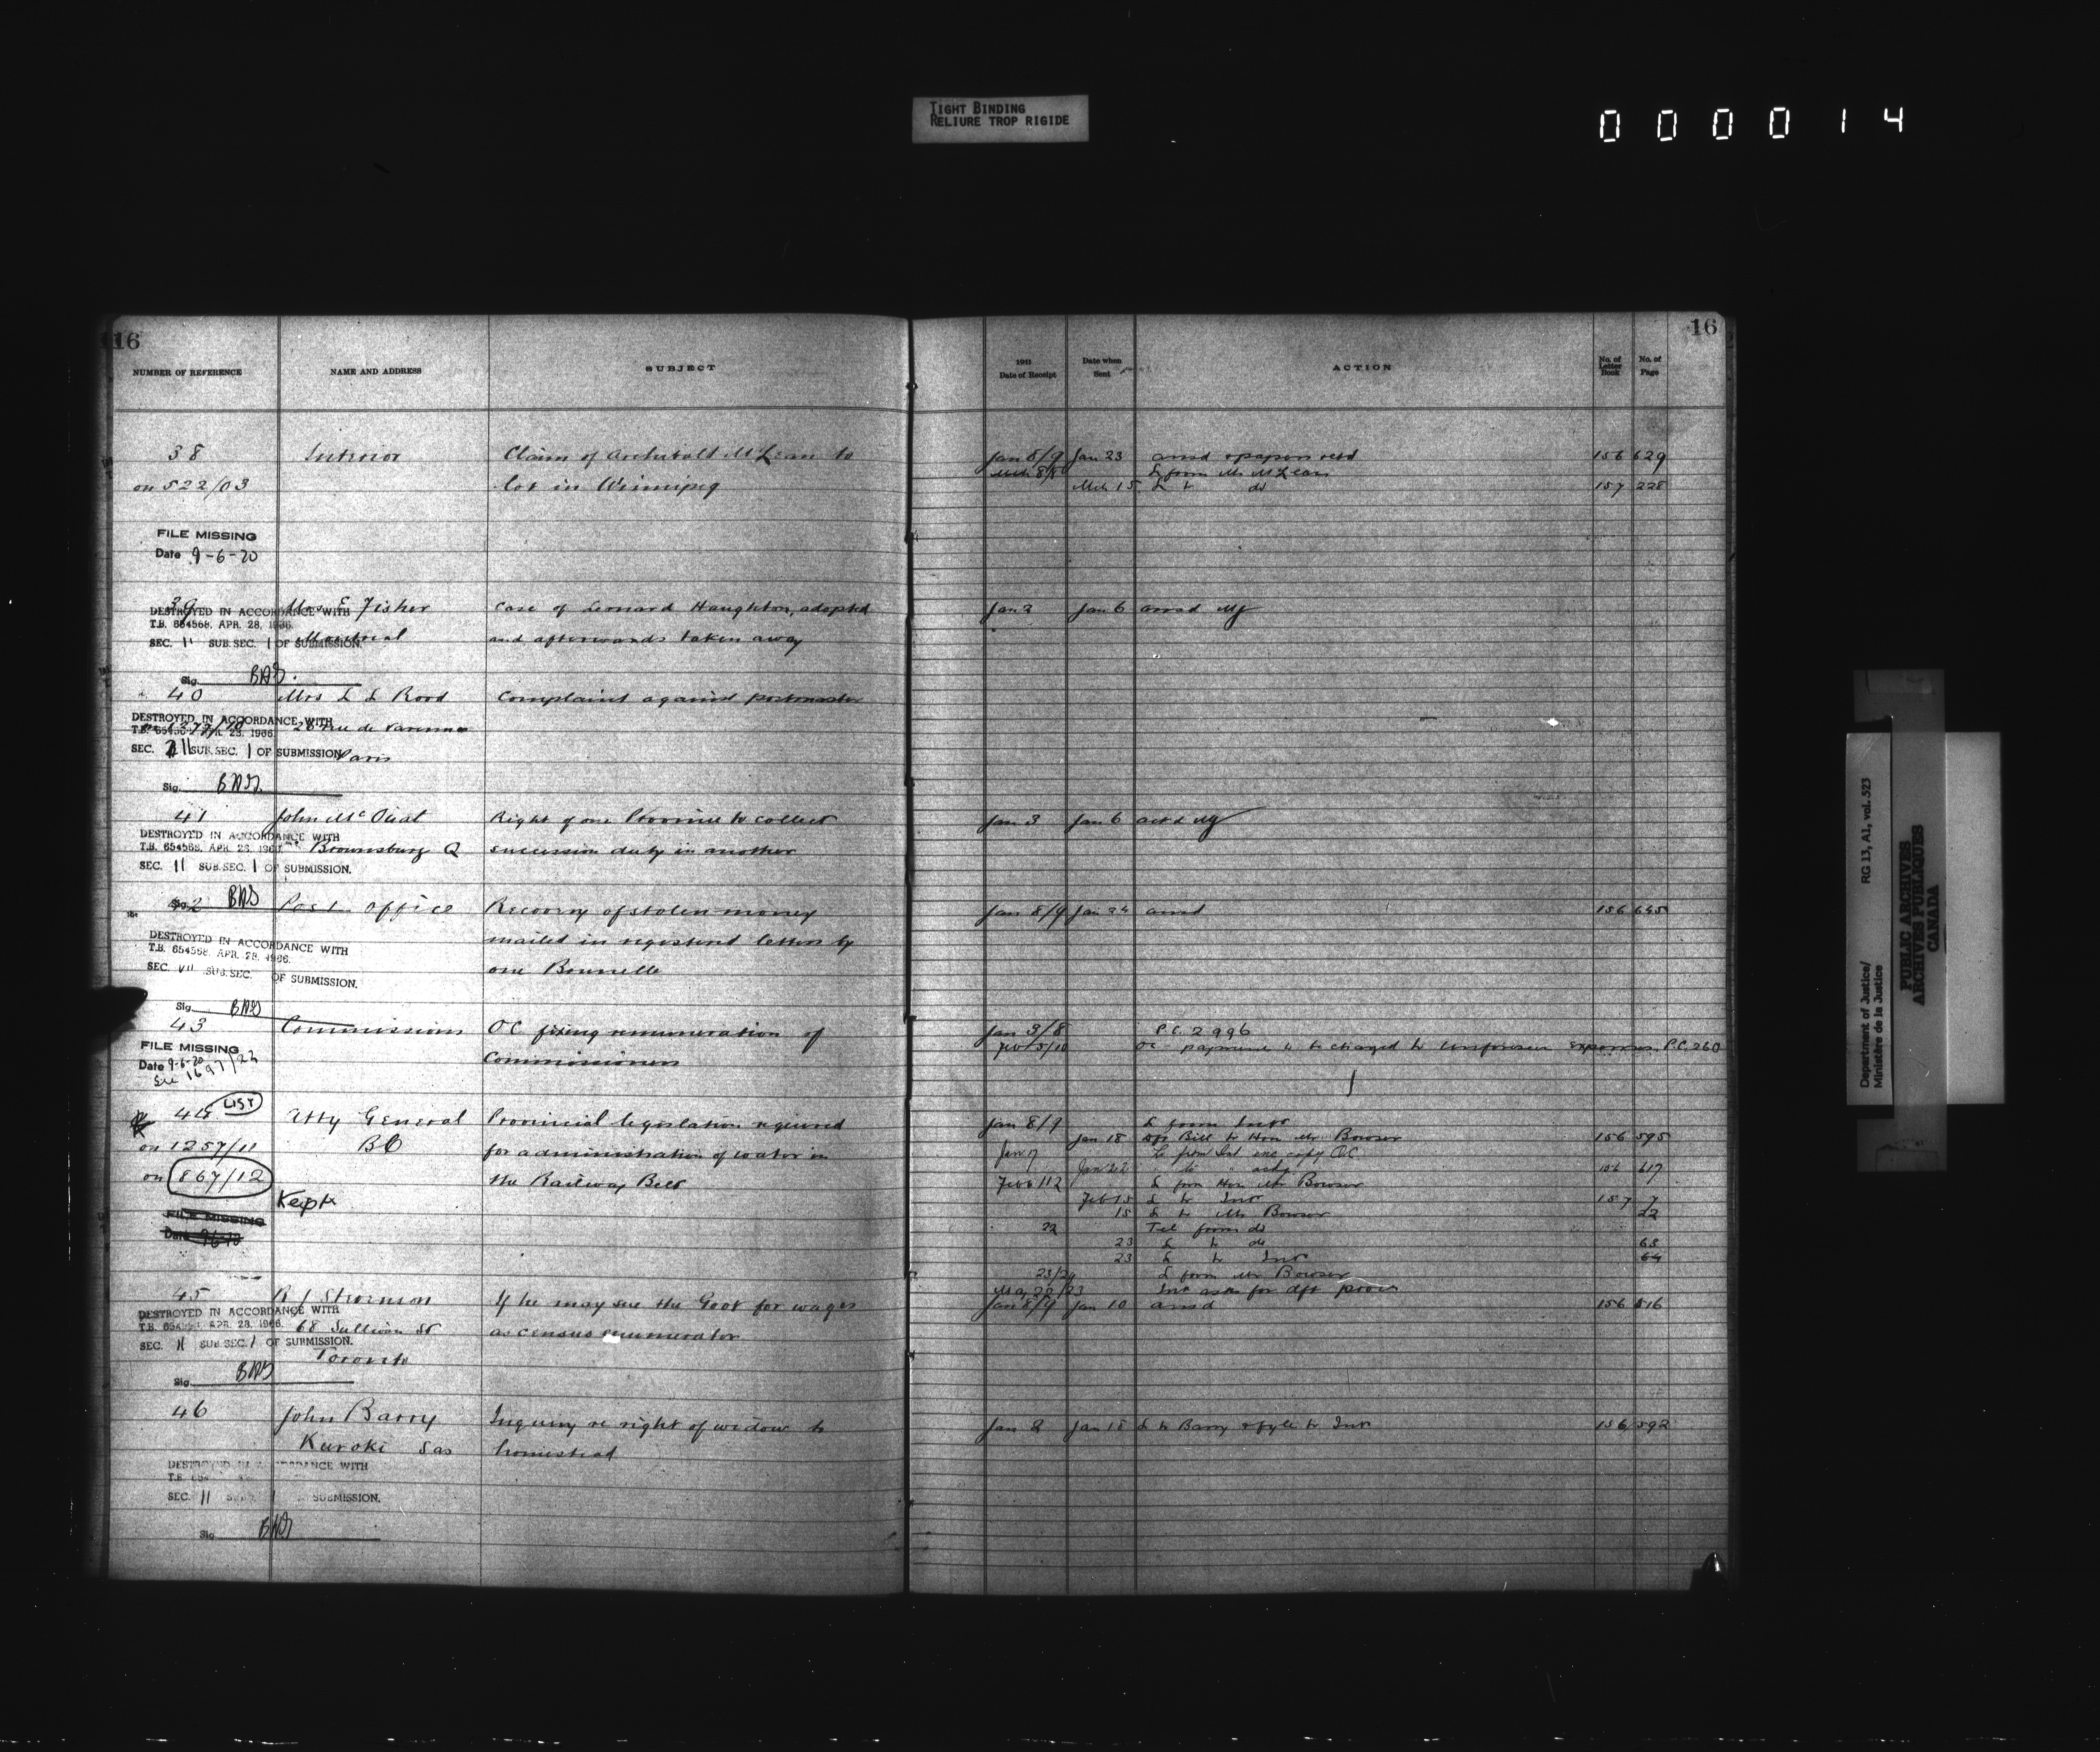 TIGHT BINDING
RELIURE TROP RIGIDE
000014
16
16
NUMBER OF REFERENCE NAME AND ADDRESS SUBJECT
1911 Date of Receipt Date when Sent ACTION No. of Letter Book No. of Page
38 Interior Claim of Archibald McLean to Jan 8/9 Jan 23 ansd & papers retd 156 629
L from Mr McLean
on 522/03 lot in Winnipeg Mch 15 L to do 157 228
FILE MISSING
Date 9-6-20
39 Mrs E Fisher Case of Leonard Haughton, adopted Jan 3 Jan 6 ansd
DESTROYED IN ACCORDANCE WITH
T.B. 654568, APR. 28, 1966.
Montreal and afterwards taken away
SEC. 11 SUB.SEC. 1 OF SUBMISSION.
Sig.
40 Mrs L L Rood Complaint against postmaster
DESTROYED IN ACCORDANCE WITH
28 rue de Varenne
SEC. 11 SUB.SEC. 1 OF SUBMISSION
Paris
Sig.
41 John Mc Ouat Right of one Province to collect Jan 3 Jan 6
DESTROYED IN ACCORDANCE WITH
T.B. 654568, APR. 28, 1966.
Brownsburg Q succession duty in another
SEC. 11 SUB.SEC. 1 OF SUBMISSION.
Sig.
42 Post Office Recovery of stolen money Jan 8/9 Jan 24 ansd 156 645
DESTROYED IN ACCORDANCE WITH
T.B. 654568, APR. 28, 1966.
mailed in registered letters by
SEC. VII SUB.SEC. OF SUBMISSION.
one Bonnelle
Sig.
43 Commissions OC fixing remuneration of Jan 3/8 P.C. 2996
Commissioners OC payment to be charged to unforeseen expenses P.C. 260
FILE MISSING
Date 9-6-20
See 1697/22
44 LIST Atty General Provincial legislation required Jan 8/9 L from Intr
on 1257/11 BC for administration of water in Jan 18 Bill to Hon Mr Bowser 156 595
Jan 17 L from Int enc copy OC
on 867/12 the Railway Belt Jan 22 156 617
L from Hon Mr Bowser
Kept
Feb 15 L to Intr 157 7
15 L to Mr Bowser 22
22 Tel from do
23 L to do 63
23 L to Intr 64
FILE MISSING
23/24 L from Mr Bowser
May 22/23 Intr asks for dft provs
45 If he may sue the Govt for wages Jan 8/9 Jan 10 ansd 156 516
DESTROYED IN ACCORDANCE WITH
68 Sullivan St as census enumerator
SEC. 11 SUB.SEC. 1 OF SUBMISSION.
Toronto
Sig.
46 John Barry Inquiry re right of widow to Jan 8 Jan 18 L to Barry & fyle to Intr 156 592
Kuroki Sas homestead
DESTROYED IN ACCORDANCE WITH
SEC. 11 SUBMISSION.
Sig.
Department of Justice/ RG 13, A1, vol. 523
Ministère de la Justice
PUBLIC ARCHIVES
ARCHIVES PUBLIQUES
CANADA